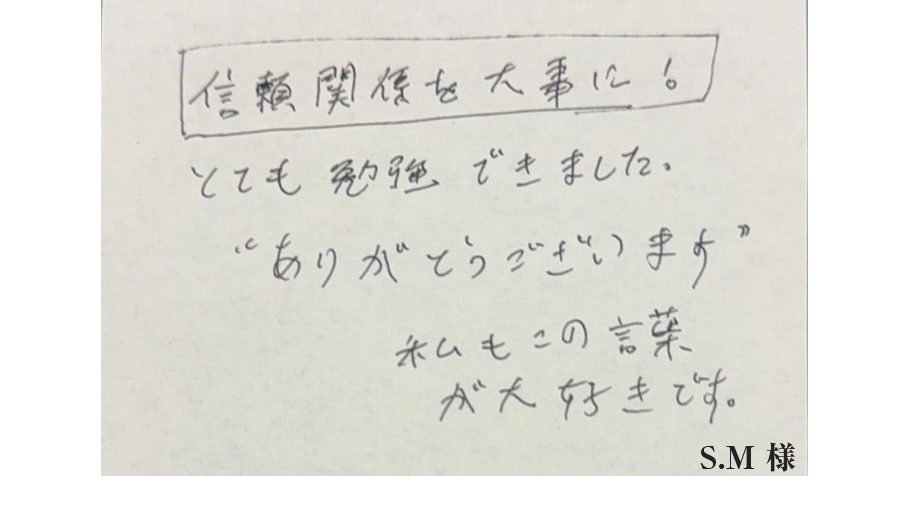 信頼関係を大事に!
とても勉強できました。
“ありがとうございます”
私もこの言葉
が大好きです。
S.M 様